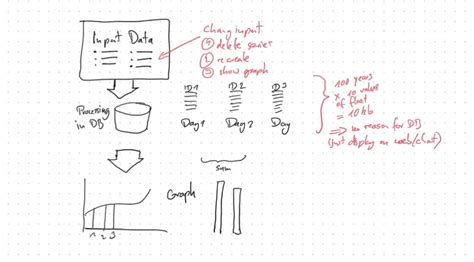 Input Data
Chang input
delete series
① recreate
show graph
Processing
in DB
ID1 ID2 ID3
Day1 Day2 Day
100 years
x 10 values
of float
= 10 kb
⇒ no reason for DB
display on web/chat)
sum
Graph
1 2 3